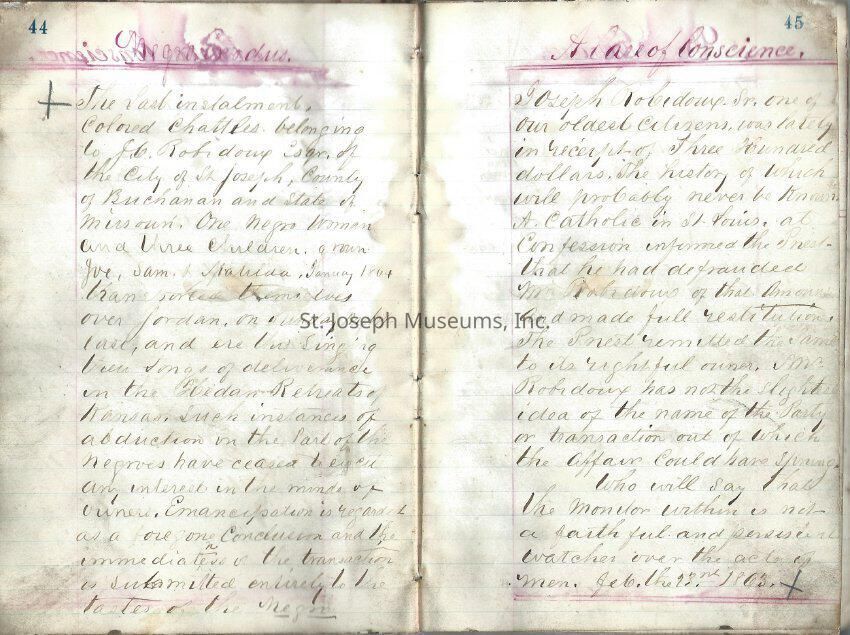 44
Negro Exodus.
The last instalment,
Colored Chattles belonging
to J.C. Robidoux Esqr. of
the City of St Joseph, County
of Buchanan and State of
Missouri. One Negro Woman
and three Children, grown
Joe, Sam & Matilda, January 1864
themselves
over Jordan, on
last, and are now singing
their songs of deliverance
in the Retreats of
Kansas. Such instances of
abduction on the Part of the
Negroes have ceased to
any interest in the minds of
owners. Emancipation is regarded
as a fore gone Conclusion and the
immediateness of the transaction
is submitted entirely to the
tastes of the Negro
45
A Case of Conscience.
Joseph Robidoux Sr. one of
our oldest Citizens, was lately
in receipt of Three Hundred
dollars. The history of which
will probably never be Known.
A Catholic in St Louis, at
Confession informed the Priest
that he had defrauded
Mr Robidoux of that Amount
had made full restitution.
The Priest remitted the same
to its rightful owner. Mr
Robidoux has not the slightest
idea of the name of the Party
or transaction out of which
the affair Could have sprung.
Who will Say that
the Monitor within is not
a faithful and
watcher over the acts of
men. Feb. the 23rd 1863.
St. Joseph Museums, Inc.